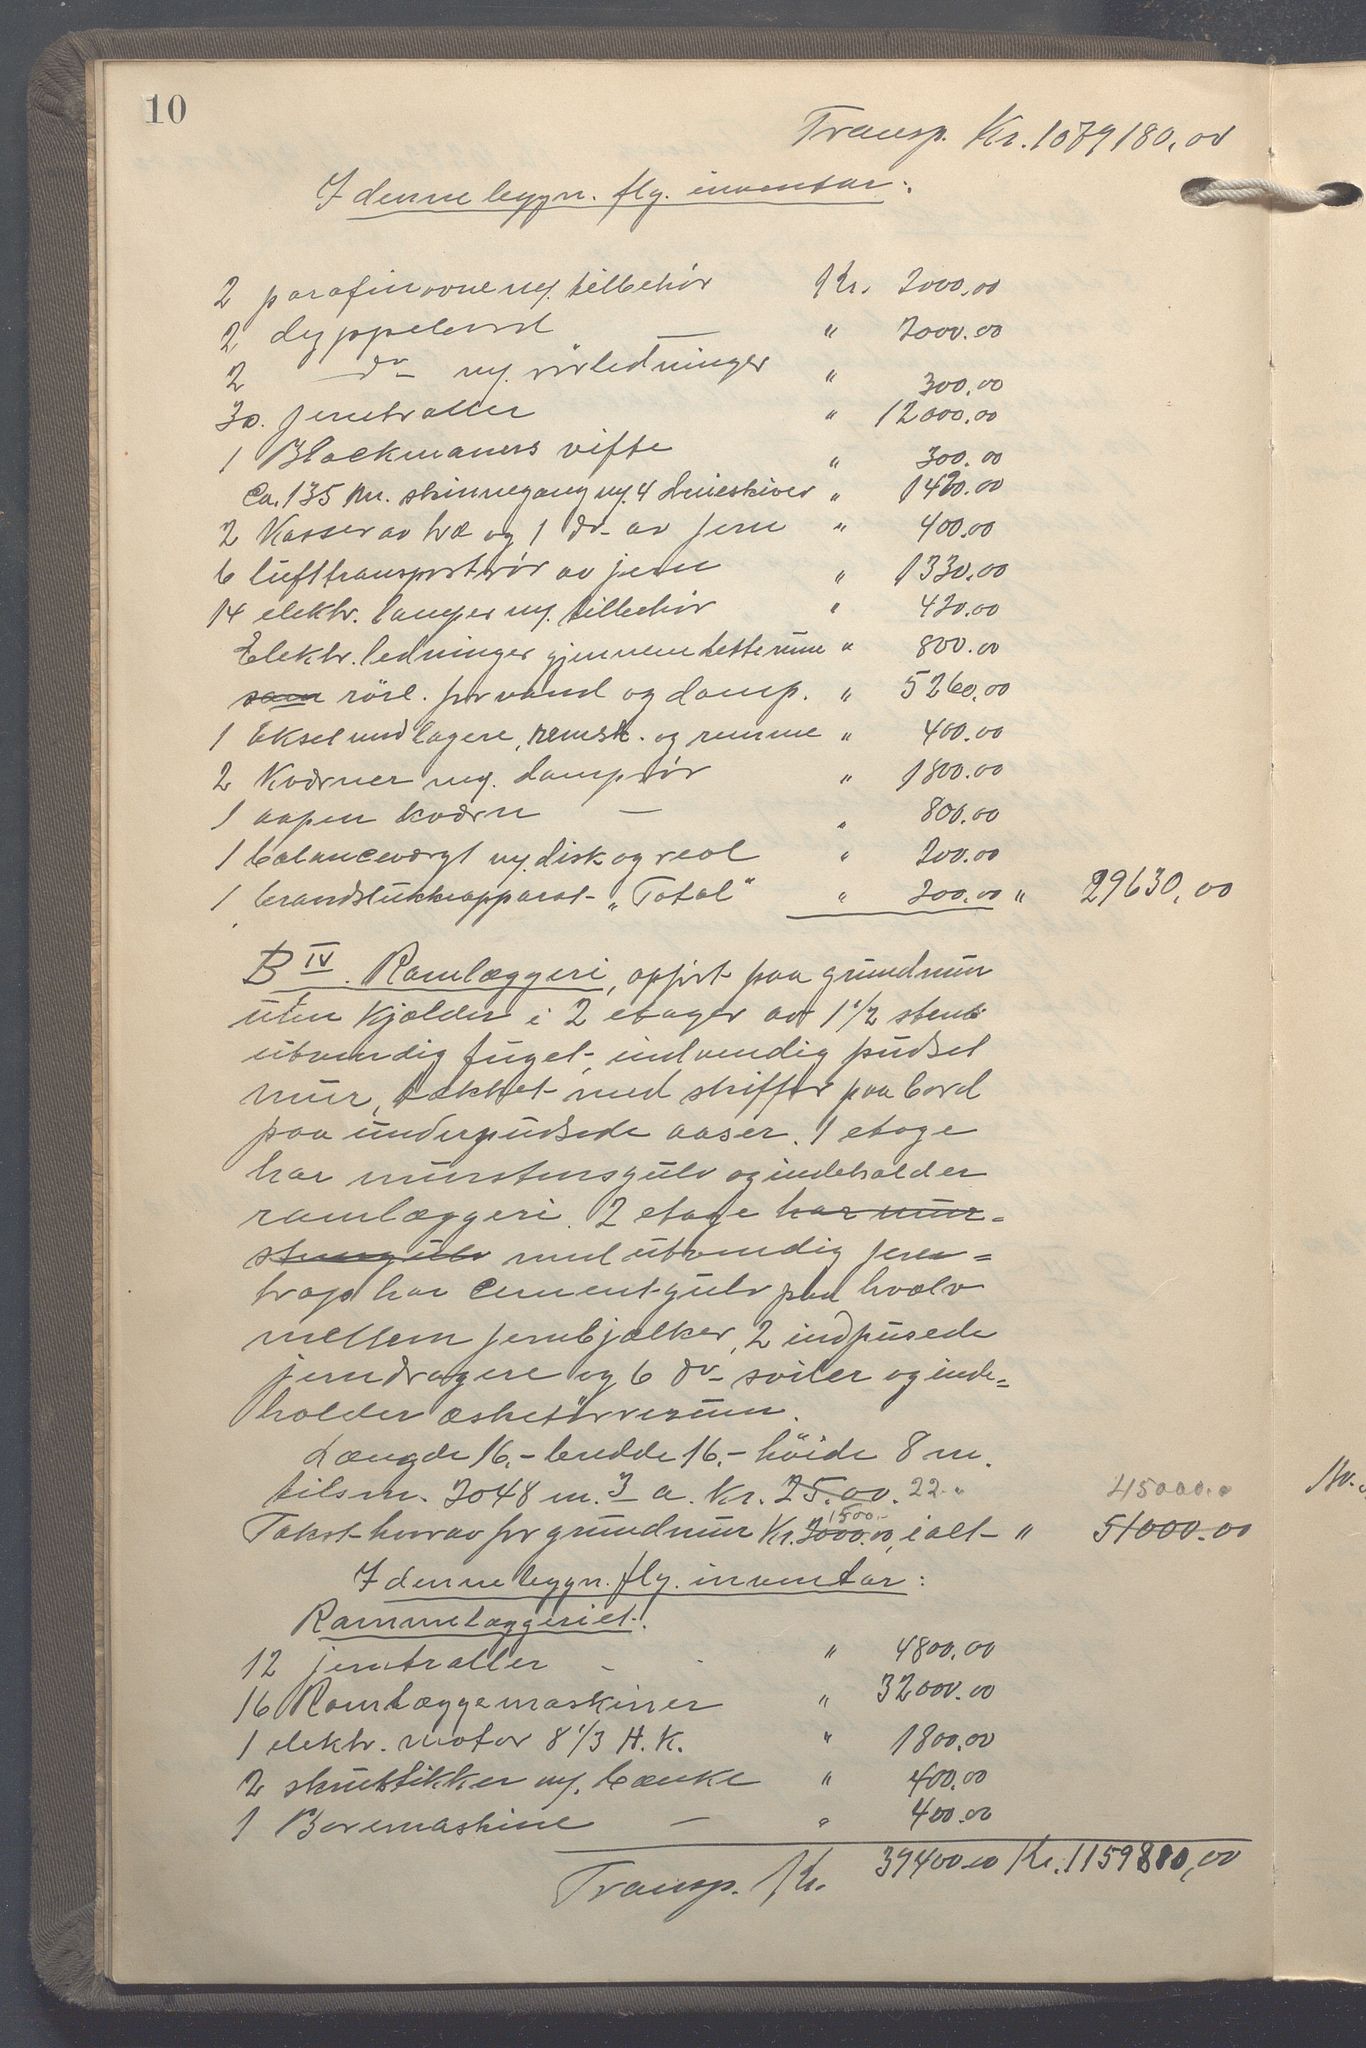 10
Transp. Kr. 1079180,00
I denne bygn. flg. inventar:
2 parafinovne m/. tilbehör Kr. 2000,00
2 dyppebord — " 2000.00
2 —do— m/. rörledninger " 300,00
30. jerntraller " 12000,00
1 Blackmanns vifte " 300.00
Ca. 135 m. skinnegang m/. 4 dreieskiver " 1420.00
2 Kasser av træ og 1 do- av jern " 400.00
6 lufttransportrör av jern " 1330.00
14 elektr. lamper m/. tilbehör " 420.00
Elektr. ledninger gjennem dette rum " 800.00
som rörl. for vand og damp. " 5260,00
1 aksel med lagere, remsk. og remme " 400.00
2 Kværner m/. damprör " 1800.00
1 aapen kværn — " 800.00
1 balancevægt m/. disk og reol " 200.00
1 brandslukkerapparat "Total" " 200.00 " 29630,00
B IV. Ramlæggeri, opfört paa grundmur
uten kjelder i 2 etager av 1 1/2 stens
utvendig fuget, indvendig pudset
mur, tækket med skiffer paa bord
paa underpudsede aaser. 1 etage
har murstensgulv og indeholder
ramlæggeri. 2 etage har mur-
stensgulv med utvendig jern=
trap har cementgulv paa hvælv
mellem jernbjælker, 2 indpusede
jerndragere og 6 do- söiler og inde=
holder æsketörrerum.
Længde 16.- bredde 16.- höide 8 m.
tilsm. 2048 m.3 a. Kr. 25.00. 22." 45000.0
1500.-
Takst hvorav for grundmur Kr. 2000.00, ialt " 51000.00
I denne bygn. flg. inventar:
Rammelæggeriet.
12 jerntraller - " 4800.00
16 Ramlæggemaskiner " 32000.00
1 elektr. motor 8 1/3 H.K. " 1800.00
2 skrustikker m/. bænke " 400.00
1 Boremaskine — " 400.00
Transp. Kr. 39400.00 Kr. 1159810,00